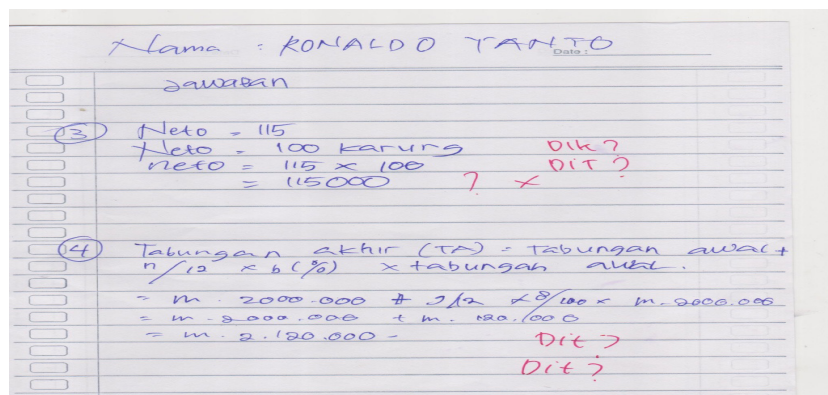 Nama : RONALDO TANTO
Date :
Jawaban
3 Neto = 115
Neto = 100 karung Dik ?
neto = 115 x 100 DIT ?
= 115000 ? x
4 Tabungan akhir (TA) = Tabungan awal +
n/12 x b (%) x tabungan awal.
= m. 2000.000 + 9/12 x 8/100 x m. 2000.000
= m. 2000.000 + m. 120.000
= m. 2.120.000 - Dit ?
Dit ?